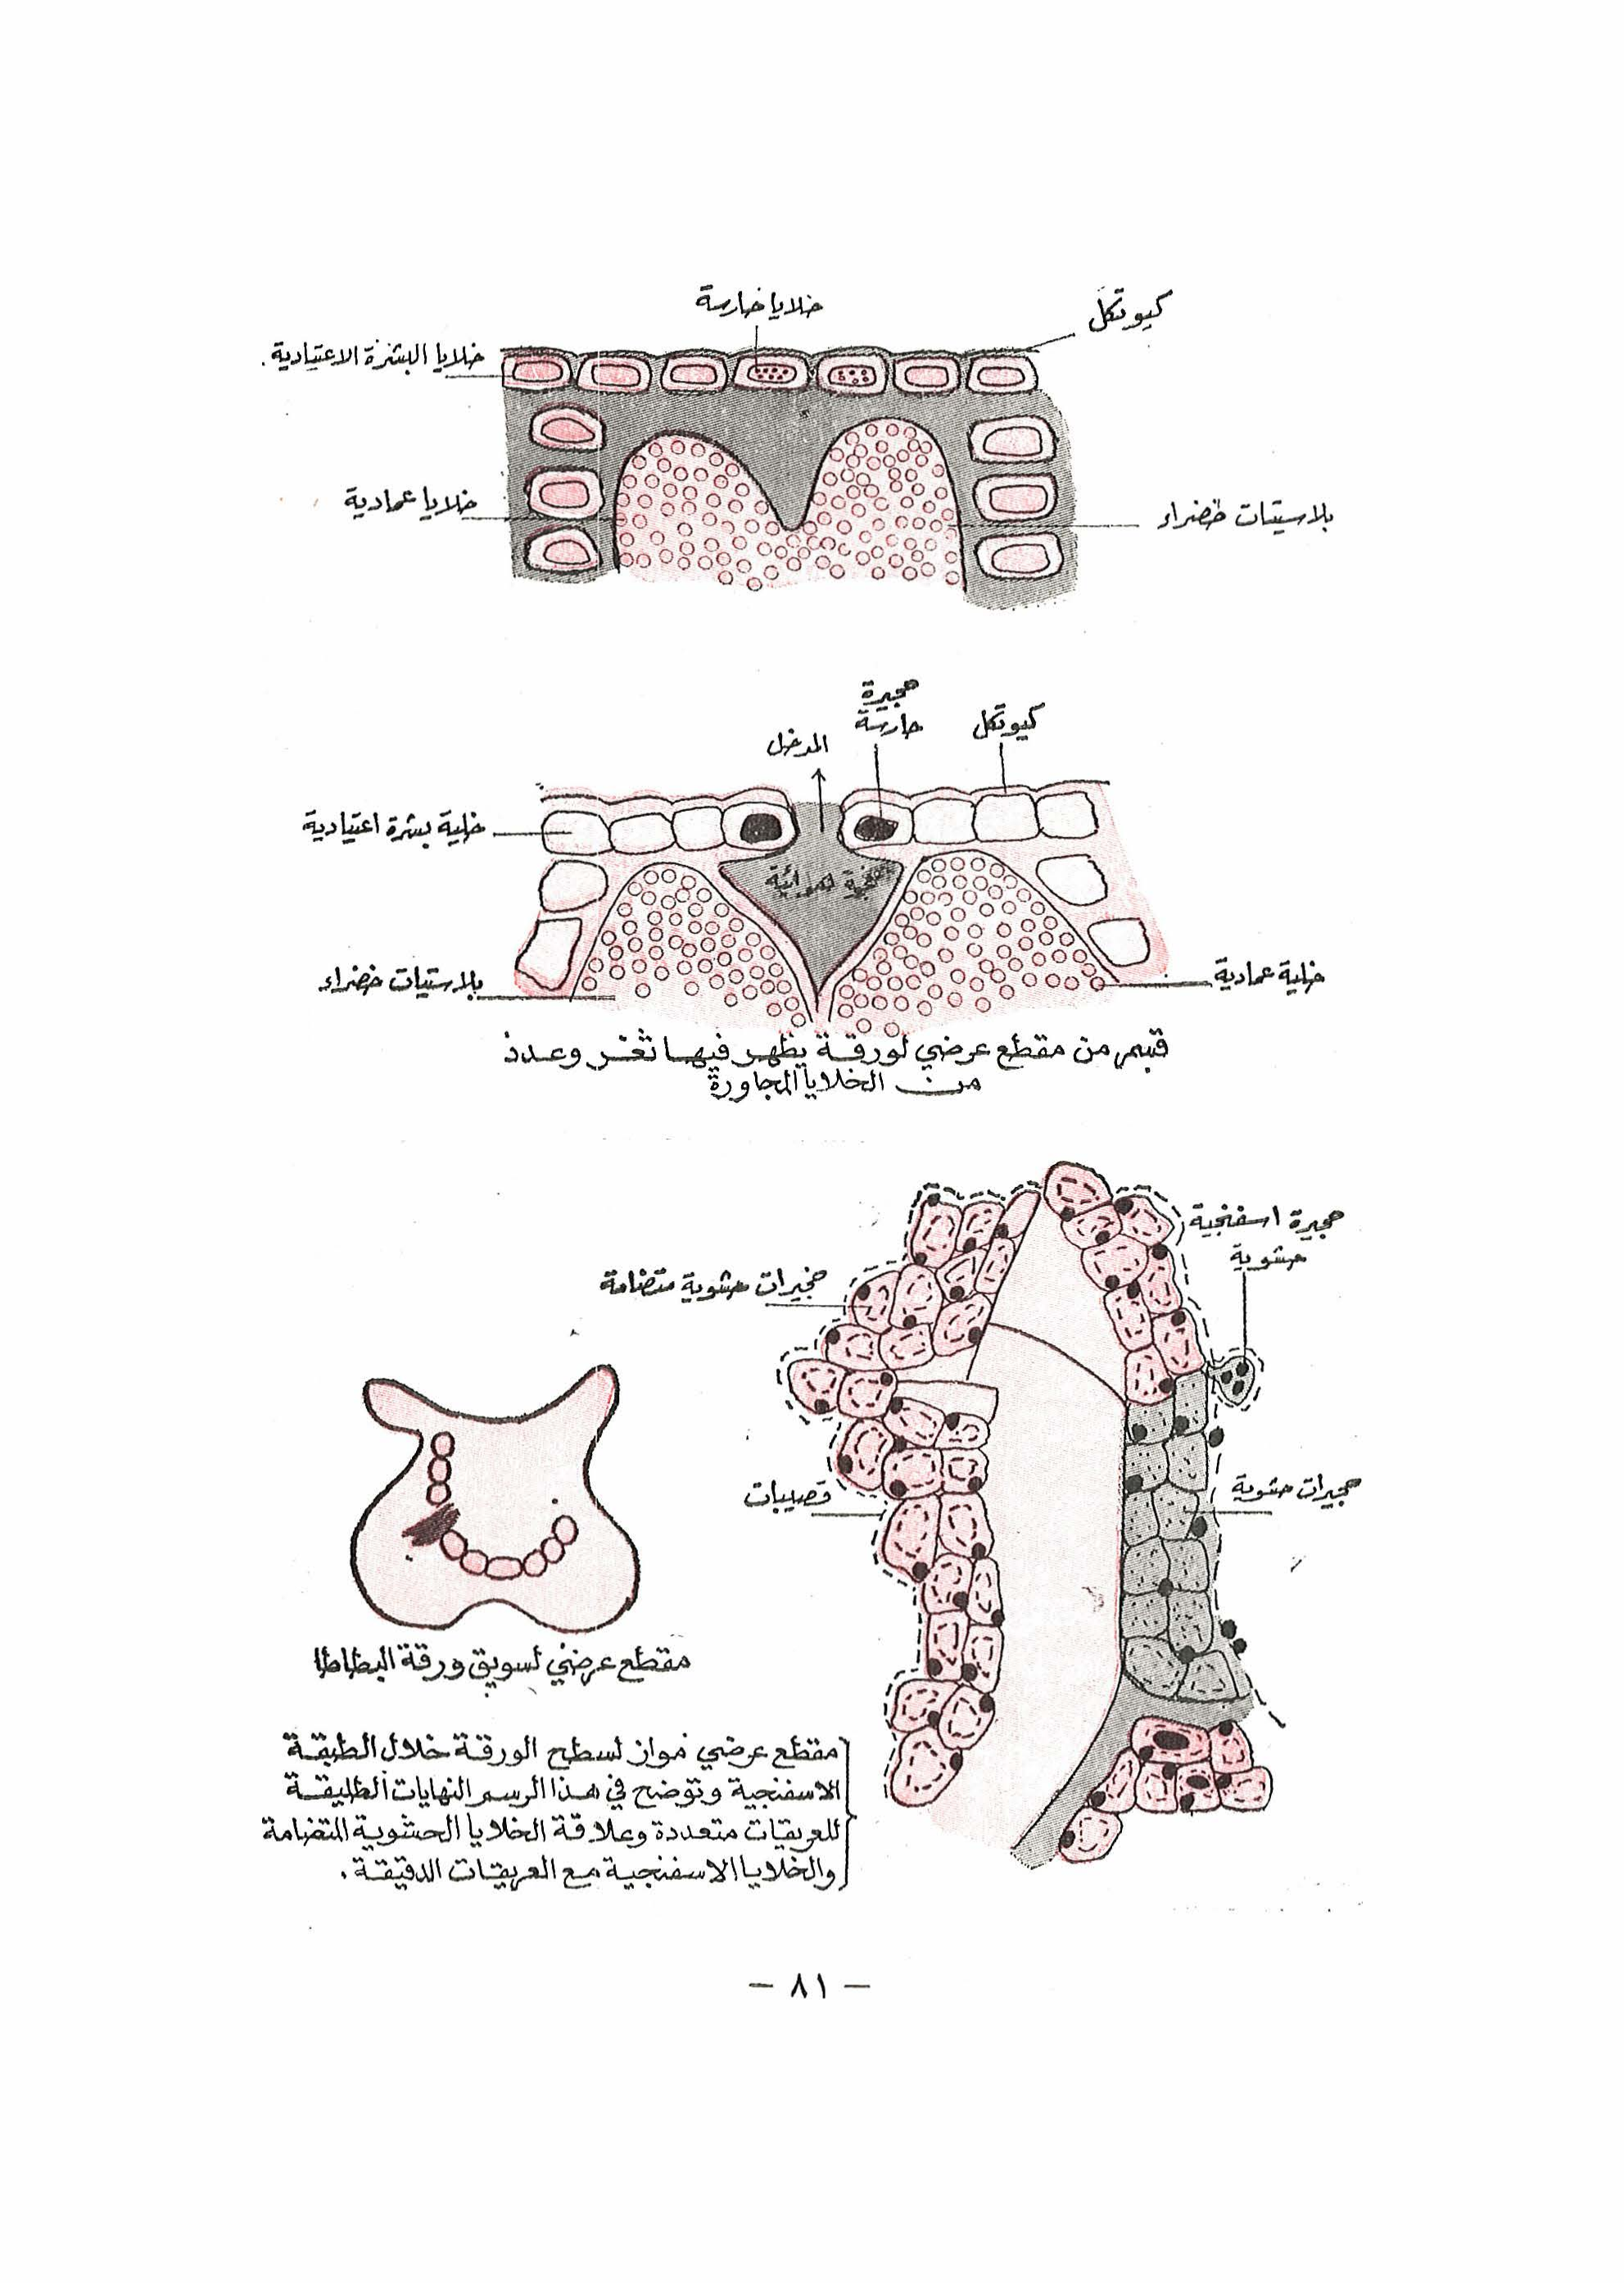 خلايا حارسة
كيوتكل
خلايا البشرة الاعتيادية.
خلايا عمادية
بلاستيتات خضراء
حجيرة
حارسة
كيوتكل
المدخل
خلية بشرة اعتيادية
هوائية
بلاستيتات خضراء
خلية عمادية
قسم من مقطع عرضي لورقة يظهر فيها ثغر وعدد
من الخلايا المجاورة
حجيرة اسفنجية
حشوية
حجيرات حشوية متضامة
قصيبات
حجيرات حشوية
مقطع عرضي لسويق ورقة البطاطا
مقطع عرضي مواز لسطح الورقة خلال الطبقة
الاسفنجية وتوضح في هذا الرسم النهايات الطليقة
للعريقات متعددة وعلاقة الخلايا الحشوية المتضامة
والخلايا الاسفنجية مع العريقات الدقيقة.
- ٨١ -